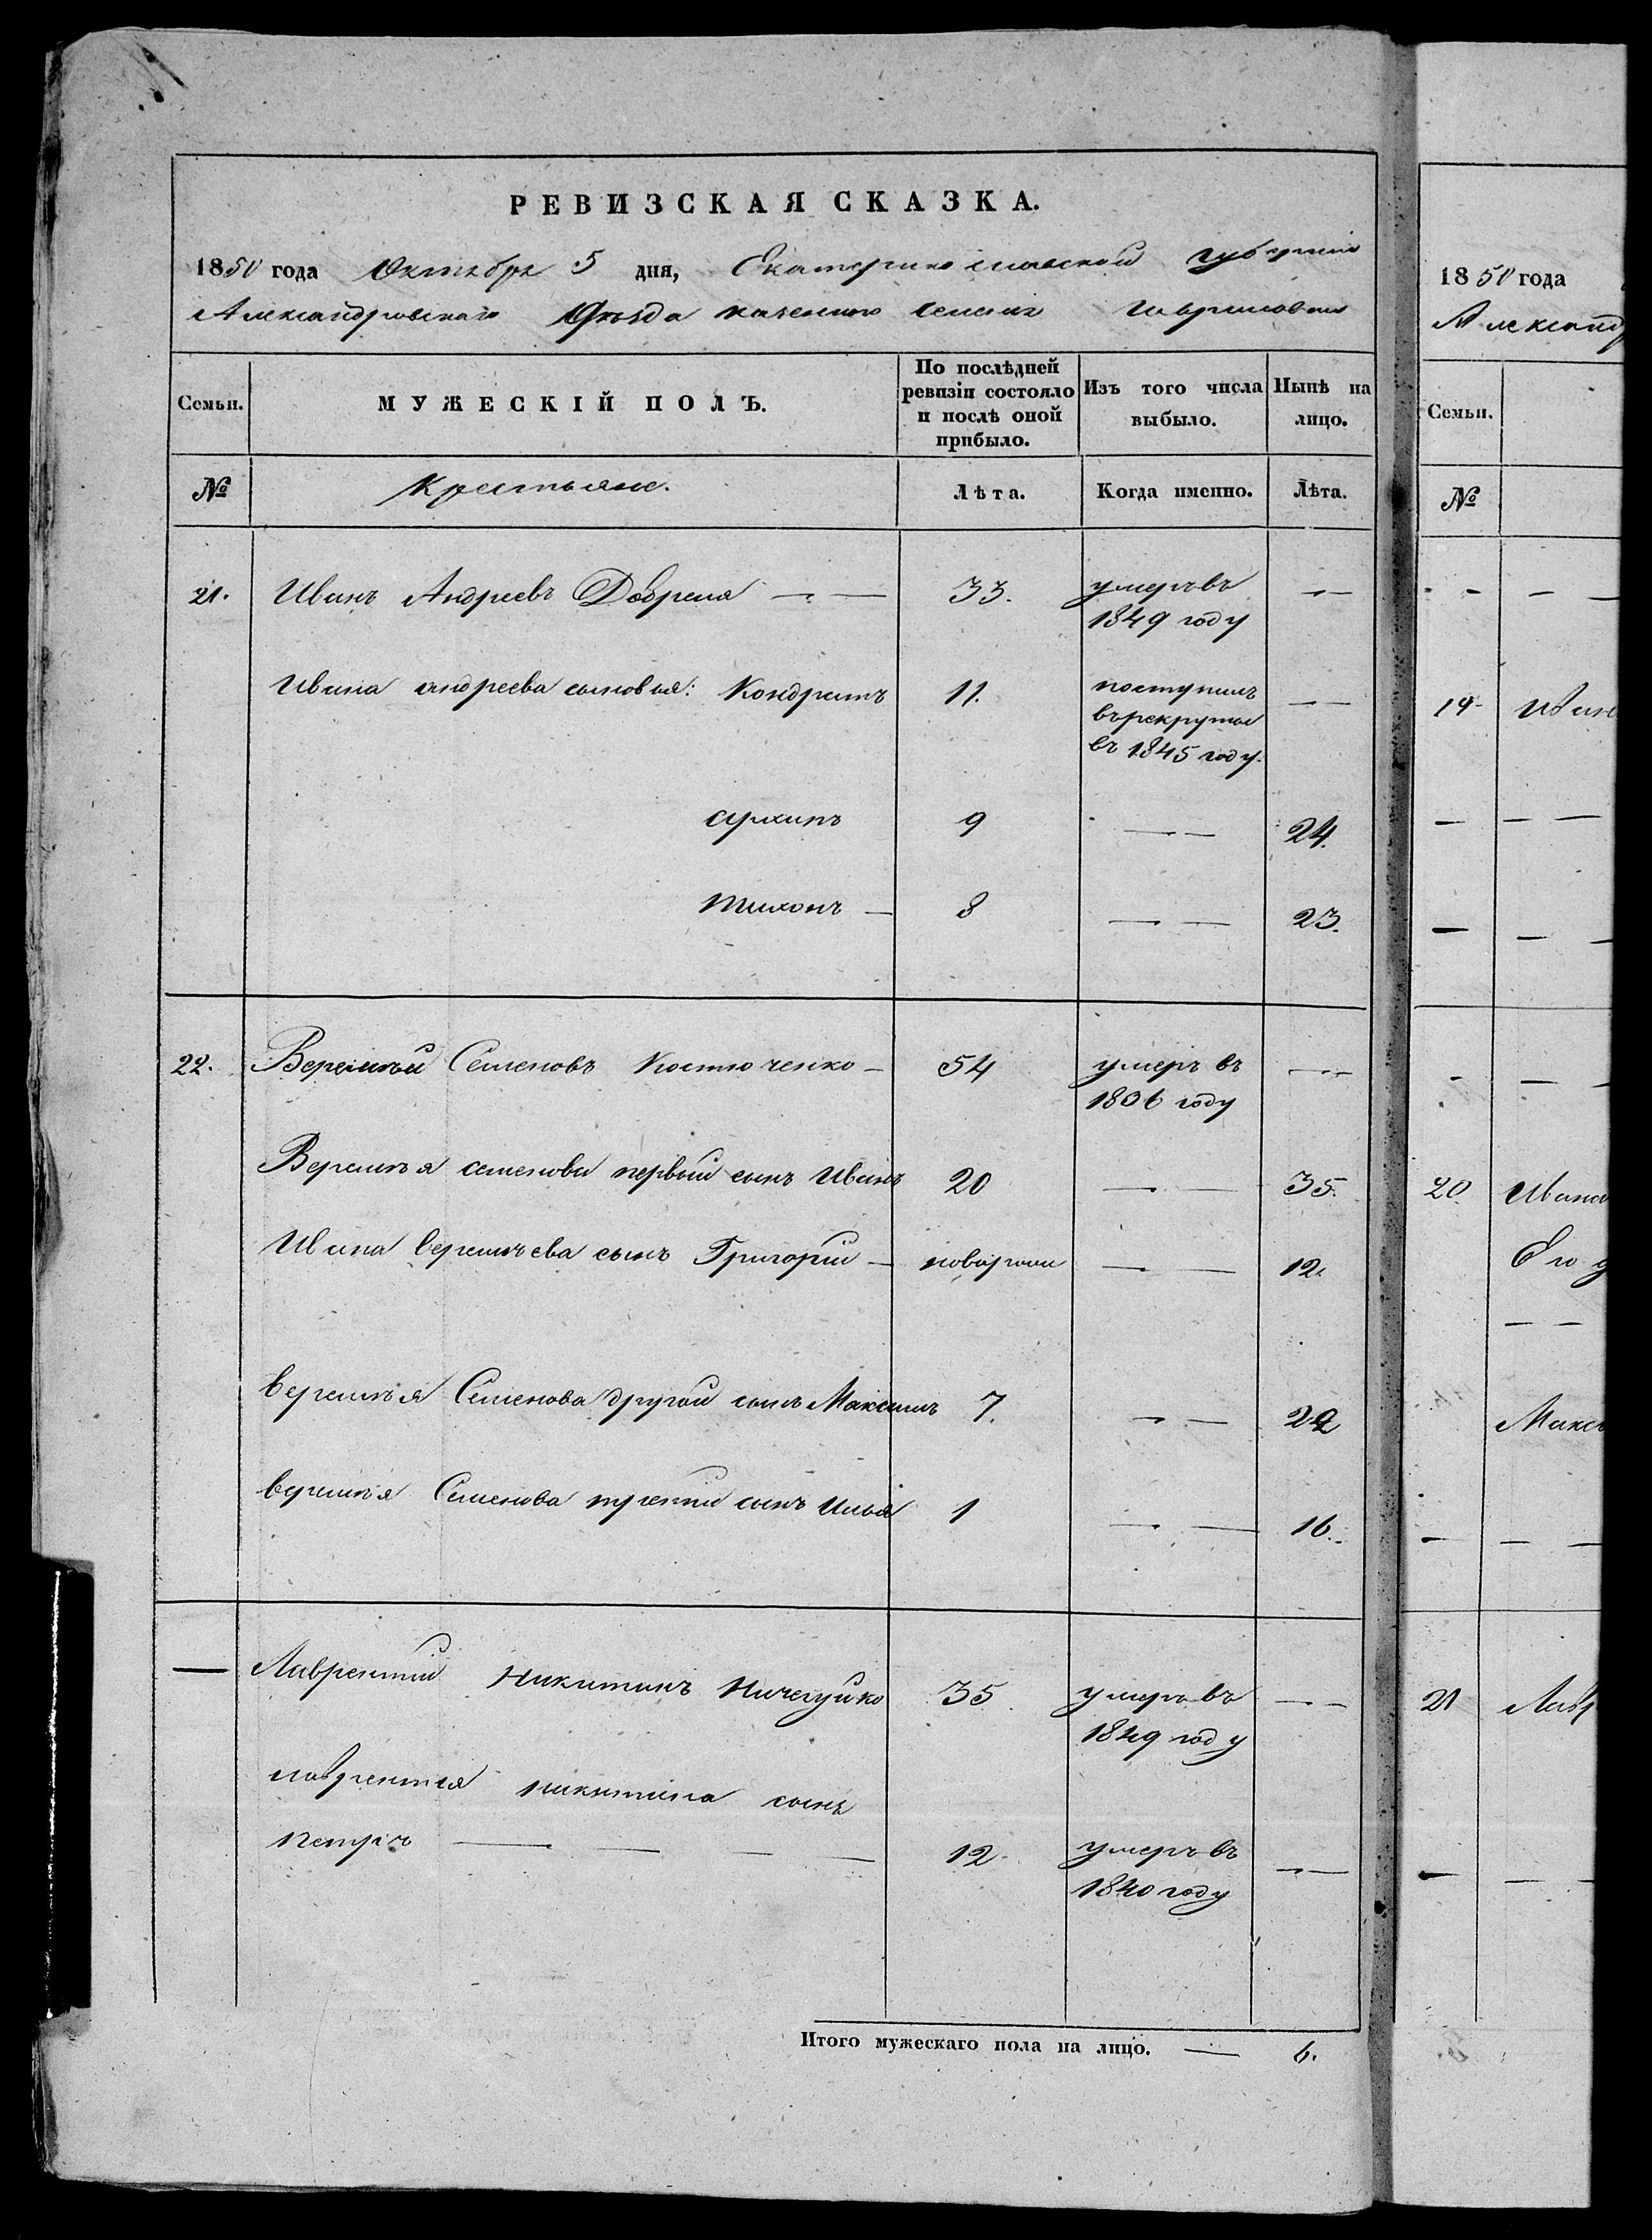 РЕВИЗСКАЯ СКАЗКА.
1850 года Октября 5 дня, Екатеринославской губернии
Александровскаго Уѣзда казенного селения Гавриловки
Семьи. МУЖЕСКІЙ ПОЛЪ. По послѣдней ревизіи состояло и послѣ оной прибыло. Изъ того числа выбыло. Нынѣ на лицо.
№ Крестьяне. Лѣта. Когда именно. Лѣта.
21. Иванъ Андреевъ Добреля 33. умеръ въ
1849 году
Ивана андреева сыновья: Кондратъ 11. поступилъ
въ рекруты
въ 1845 году.
архипъ 9 24.
тихонъ 8 23.
22. Веремѣй Семеновъ Костюченко 54 умеръ въ
1836 году
Веремѣя семенова первый сынъ Иванъ 20 35.
Ивана веремѣева сынъ Григорій новорож 12.
веремѣя Семенова другой сынъ Максимъ 7. 22
веремѣя Семенова третій сынъ Илья 1 16.
Лаврентій Никитинъ 35 умеръ въ
1849 году
лаврентія никитина сынъ
петръ 12 умеръ въ
1840 году
Итого мужескаго пола на лицо. 6.
1850 года
Александ
Семьи.
№
19 Иван
20 Ивана
Его
Макс
21 Лавр